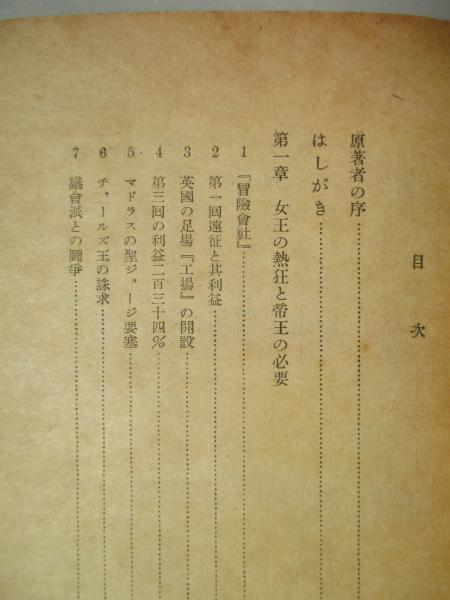 目次
原著者の序
はしがき
第一章 女王の熱狂と帝王の必要
1 『冒險會社』
2 第一回遠征と其利益
3 英國の足場『工場』の開設
4 第三回の利益二百三十四%
5 マドラスの聖ジョージ要塞
6 チャールズ王の誅求
7 議會派との闘爭